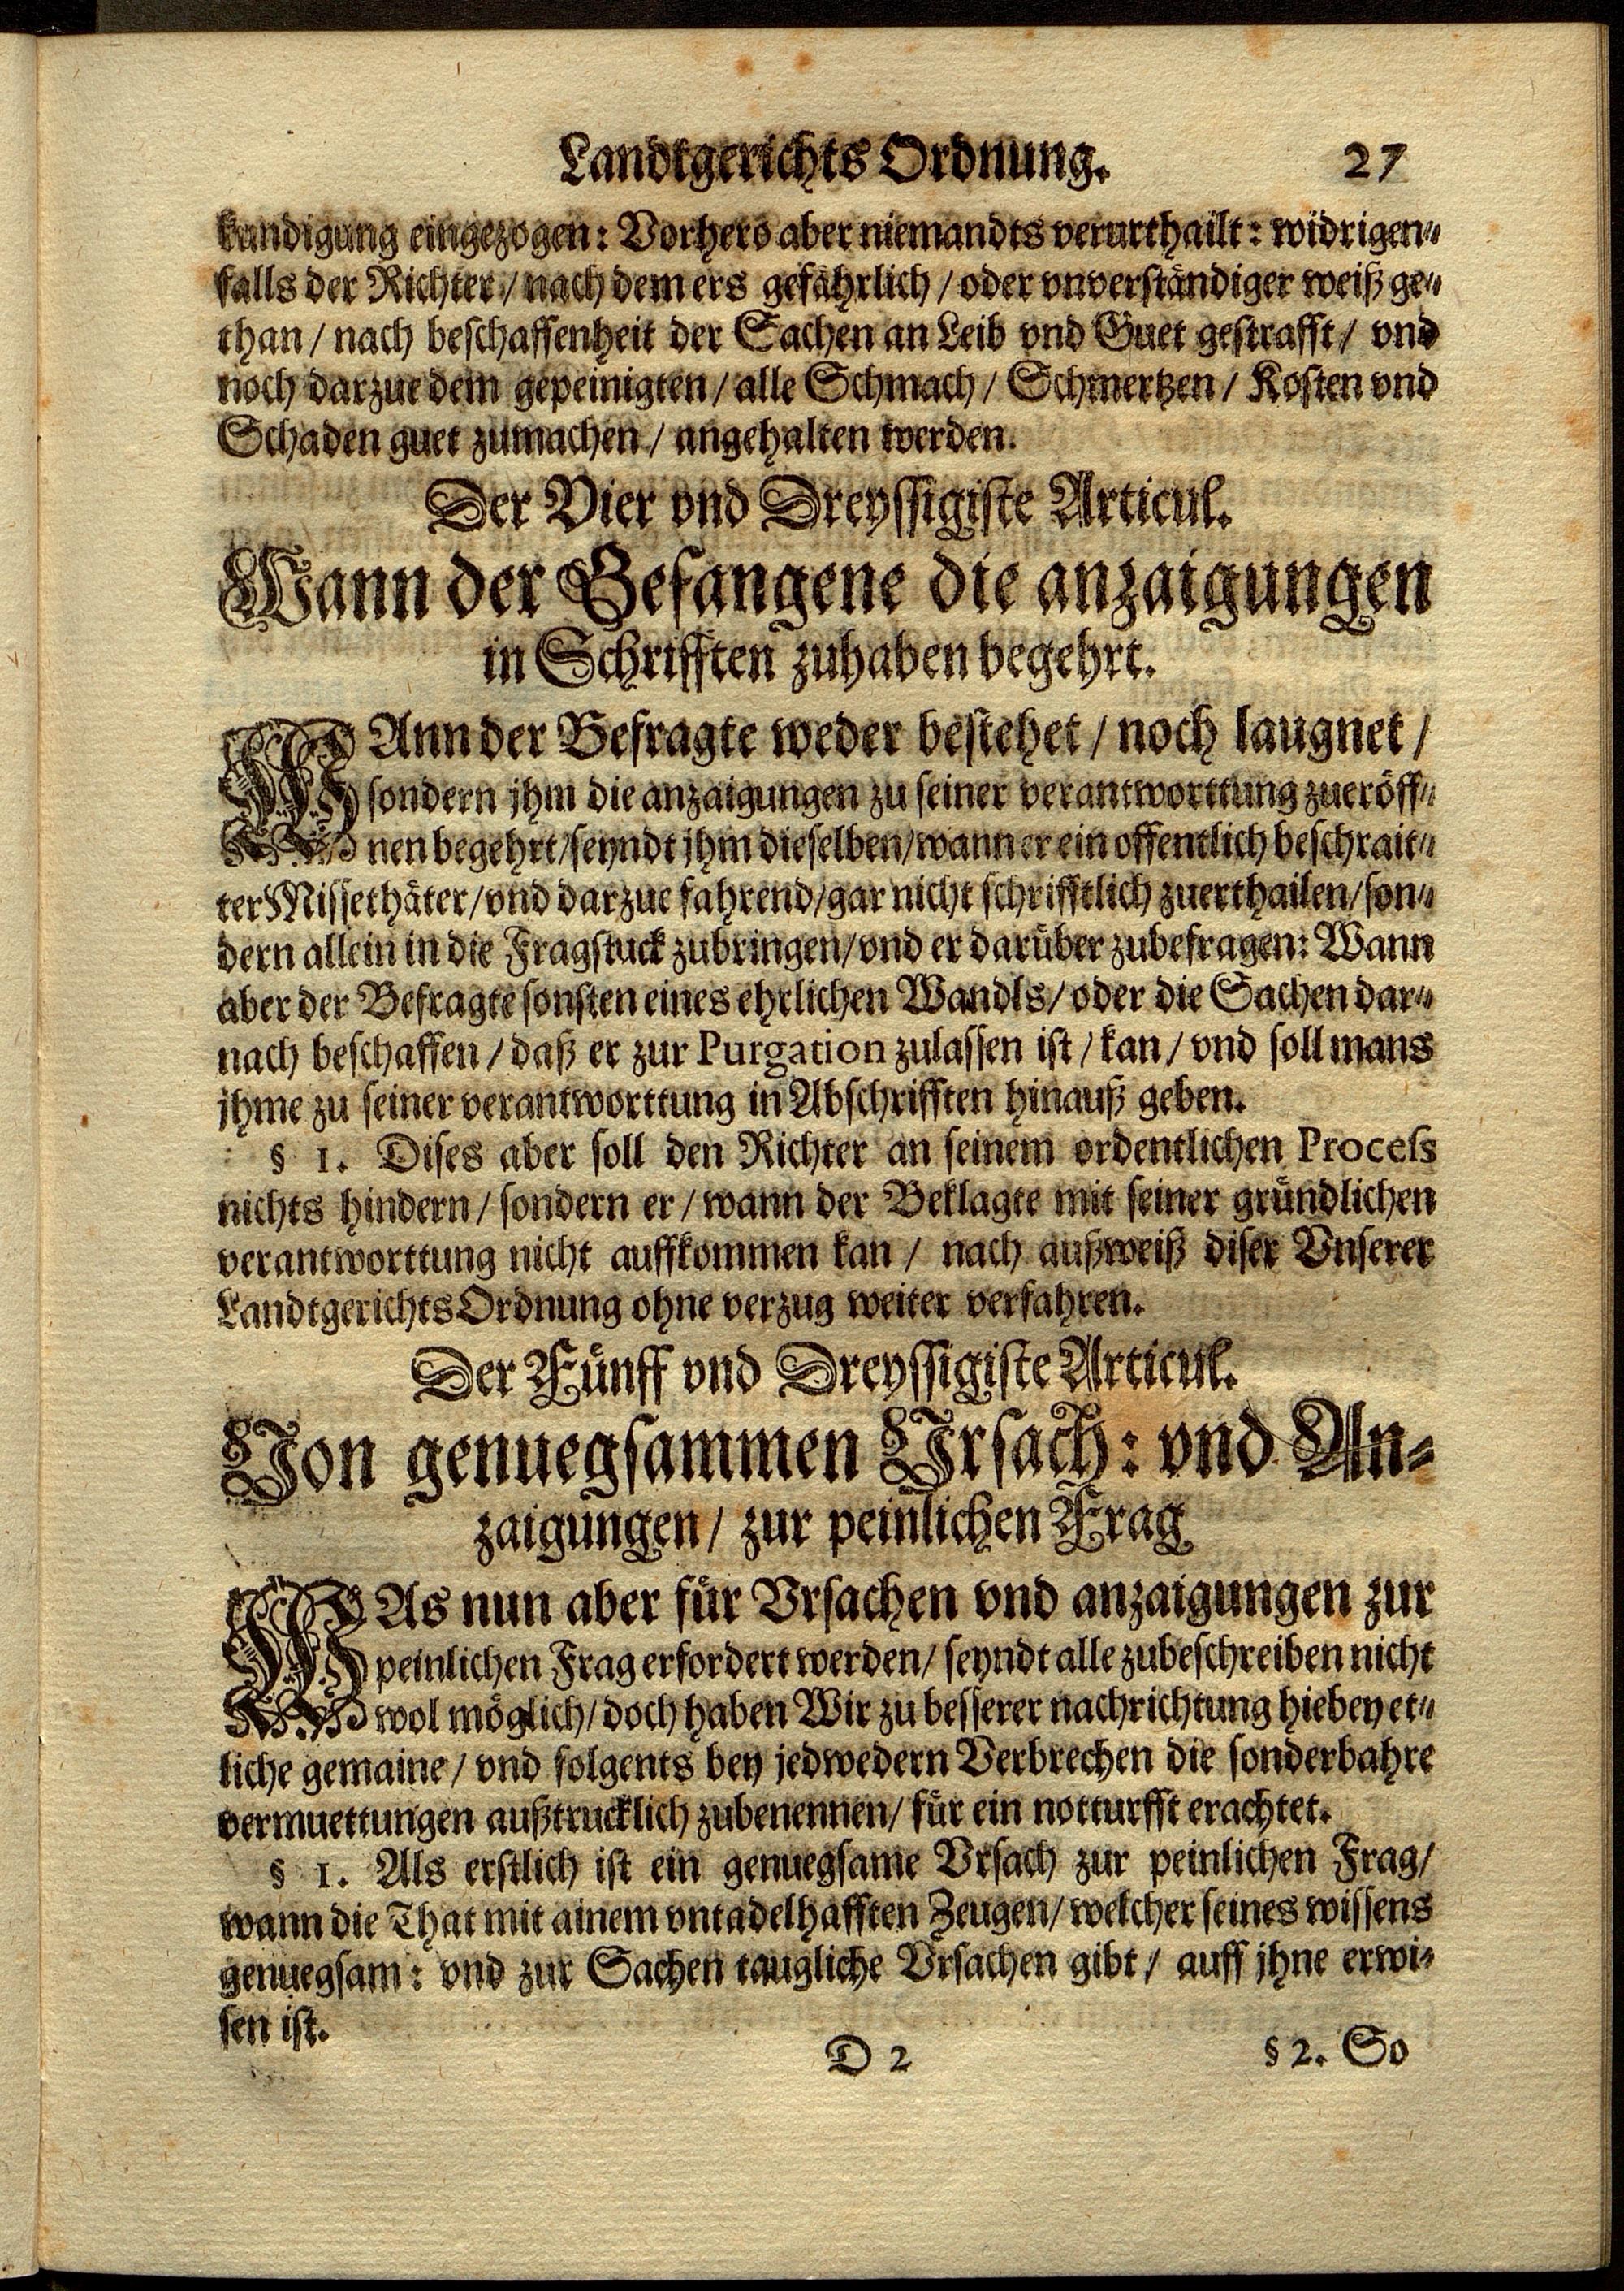 Landtgerichts Ordnung. 27
kundigung eingezogen: Vorhero aber niemandts verurthailt: widrigen-
falls der Richter / nach dem ers gefährlich / oder vnverständiger weiß ge-
than / nach beschaffenheit der Sachen an Leib vnd Guet gestrafft / vnd
noch darzue dem gepeinigten / alle Schmach / Schmertzen / Kosten vnd
Schaden guet zumachen / angehalten werden.
Der Vier vnd Dreyssigiste Articul.
Wann der Gefangene die anzaigungen
in Schrifften zuhaben begehrt.
WAnn der Befragte weder bestehet / noch laugnet /
sondern jhm die anzaigungen zu seiner verantworttung zueröff-
nen begehrt / seyndt jhm dieselben / wann er ein offentlich beschrait-
ter Missethäter / vnd darzue fahrend / gar nicht schrifftlich zuerthailen / son-
dern allein in die Fragstuck zubringen / vnd er darüber zubefragen: Wann
aber der Befragte sonsten eines ehrlichen Wandls / oder die Sachen dar-
nach beschaffen / daß er zur Purgation zulassen ist / kan / vnd soll mans
jhme zu seiner verantworttung in Abschrifften hinauß geben.
§ 1. Dises aber soll den Richter an seinem ordentlichen Process
nichts hindern / sondern er / wann der Beklagte mit seiner gründlichen
verantworttung nicht auffkommen kan / nach außweiß diser Vnserer
Landtgerichts Ordnung ohne verzug weiter verfahren.
Der Fünff vnd Dreyssigiste Articul.
Von genuegsammen Vrsach: vnd An-
zaigungen / zur peinlichen Frag
WAs nun aber für Vrsachen vnd anzaigungen zur
peinlichen Frag erfordert werden / seyndt alle zubeschreiben nicht
wol möglich / doch haben Wir zu besserer nachrichtung hiebey et-
liche gemaine / vnd folgents bey jedwedern Verbrechen die sonderbahre
vermuettungen außtrucklich zubenennen / für ein notturfft erachtet.
§ 1. Als erstlich ist ein genuegsame Vrsach zur peinlichen Frag /
wann die That mit ainem vntadelhafften Zeugen / welcher seines wissens
genuegsam: vnd zur Sachen taugliche Vrsachen gibt / auff jhne erwi-
sen ist.
D 2 § 2. So